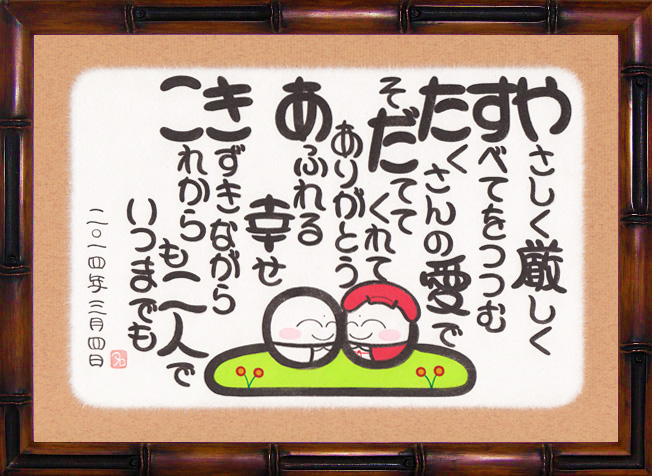 やさしく厳しく
すべてをつつむ
たくさんの愛で
そだててくれて
ありがとう
あふれる幸せ
きずきながら
これからも二人で
いつまでも
二〇一四年三月四日